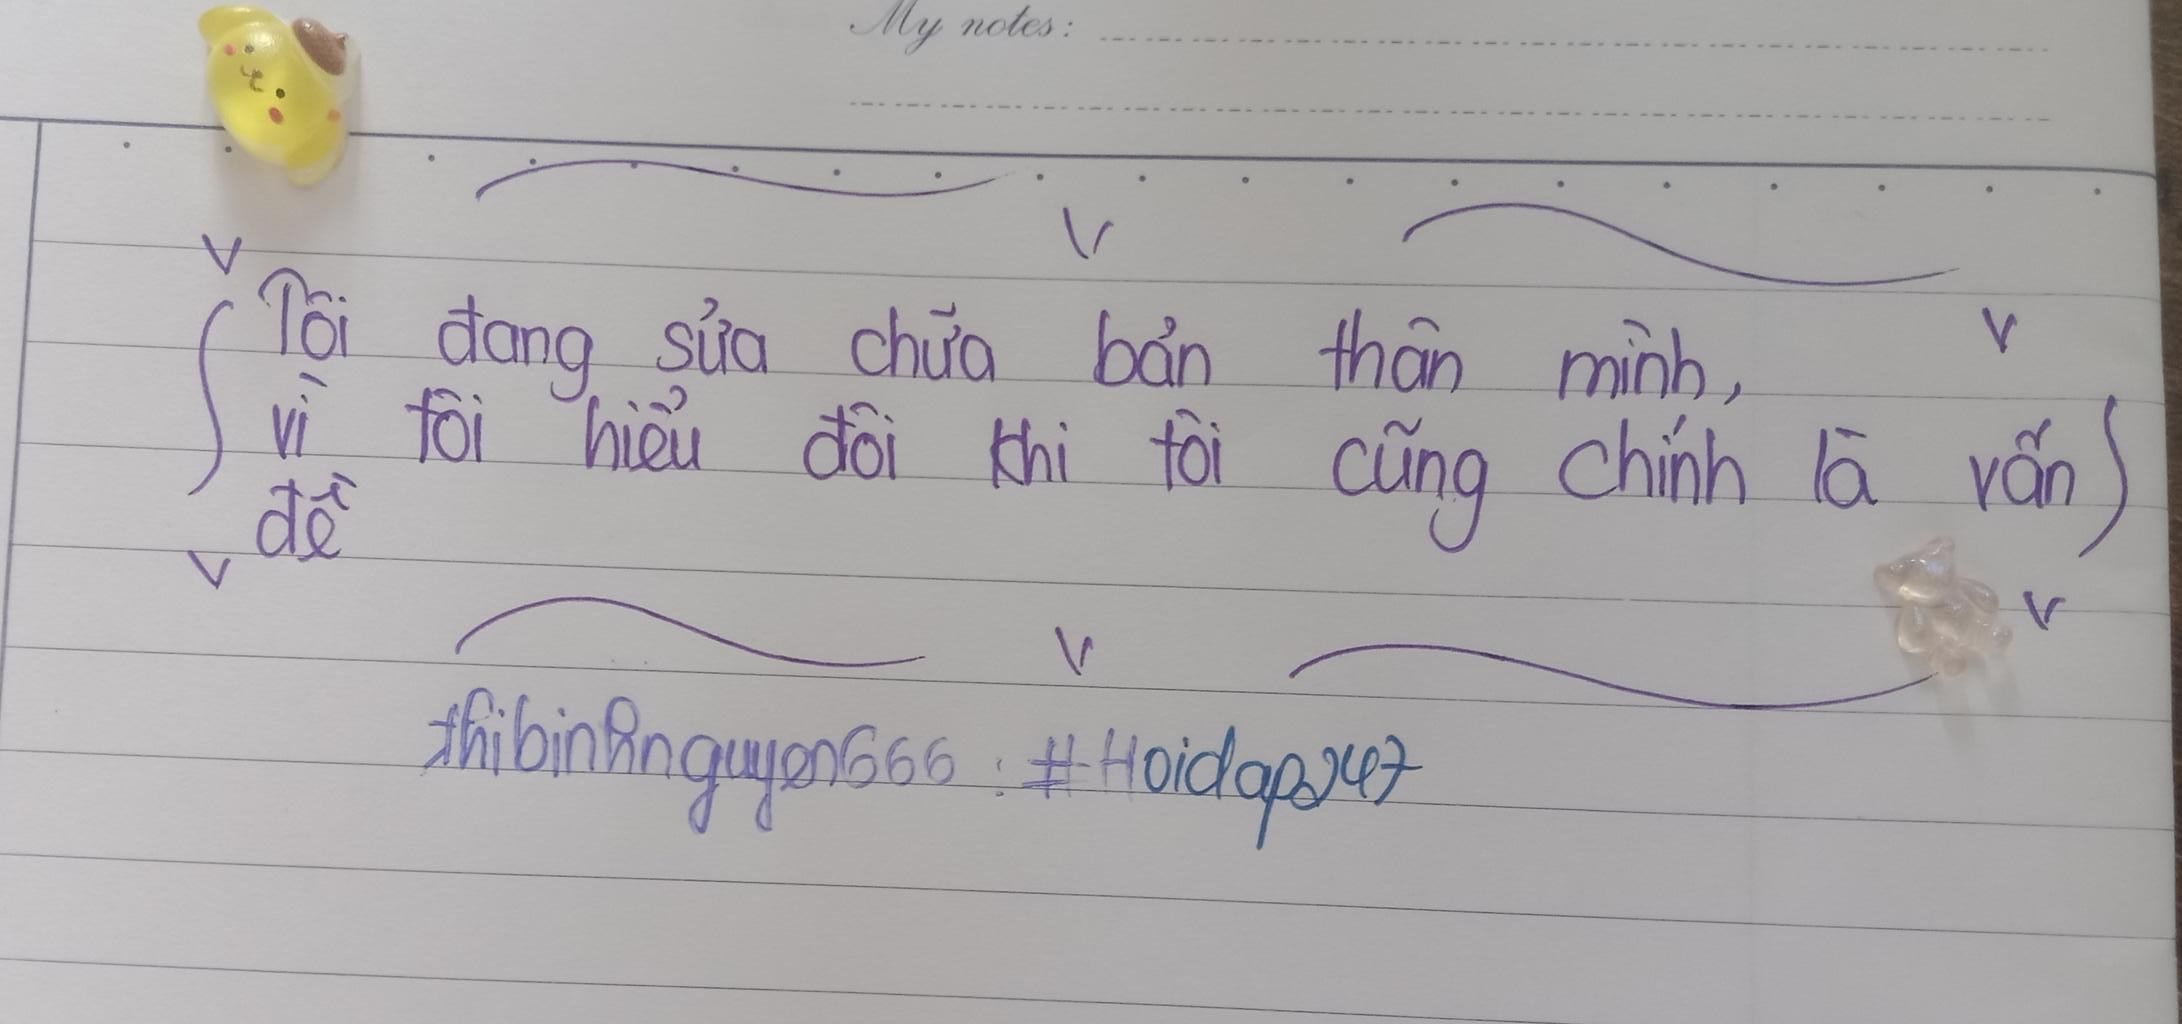 My notes:
Tôi đang sửa chữa bản thân mình,
vì tôi hiểu đôi khi tôi cũng chính là vấn
đề
thibinhnguyen666 : #Hoidap247